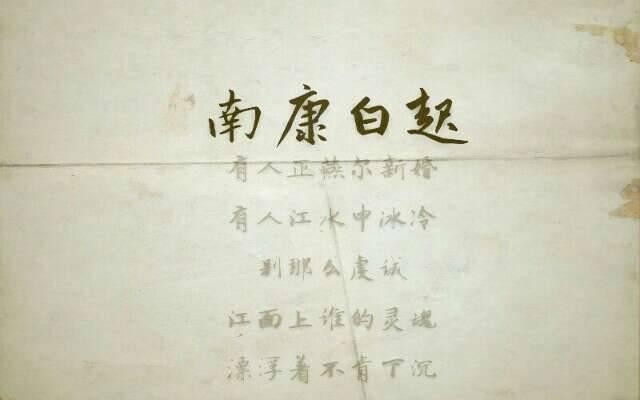 南康白起
有人正燕尔新婚
有人江水中冰冷
刹那么虔诚
江面上谁的灵魂
漂浮着不肯下沉